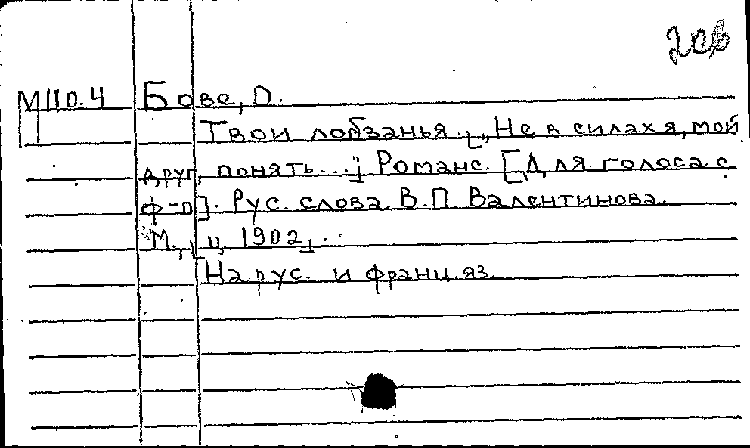 М110.4 Бове, О.
Твои лобзанья. ["Не в силах я, мой
друг, понять..."] Романс. [Для голоса с
ф-п]. Рус. слова В.П. Валентинова.
М., ц. 1902].
На рус. и франц. яз.